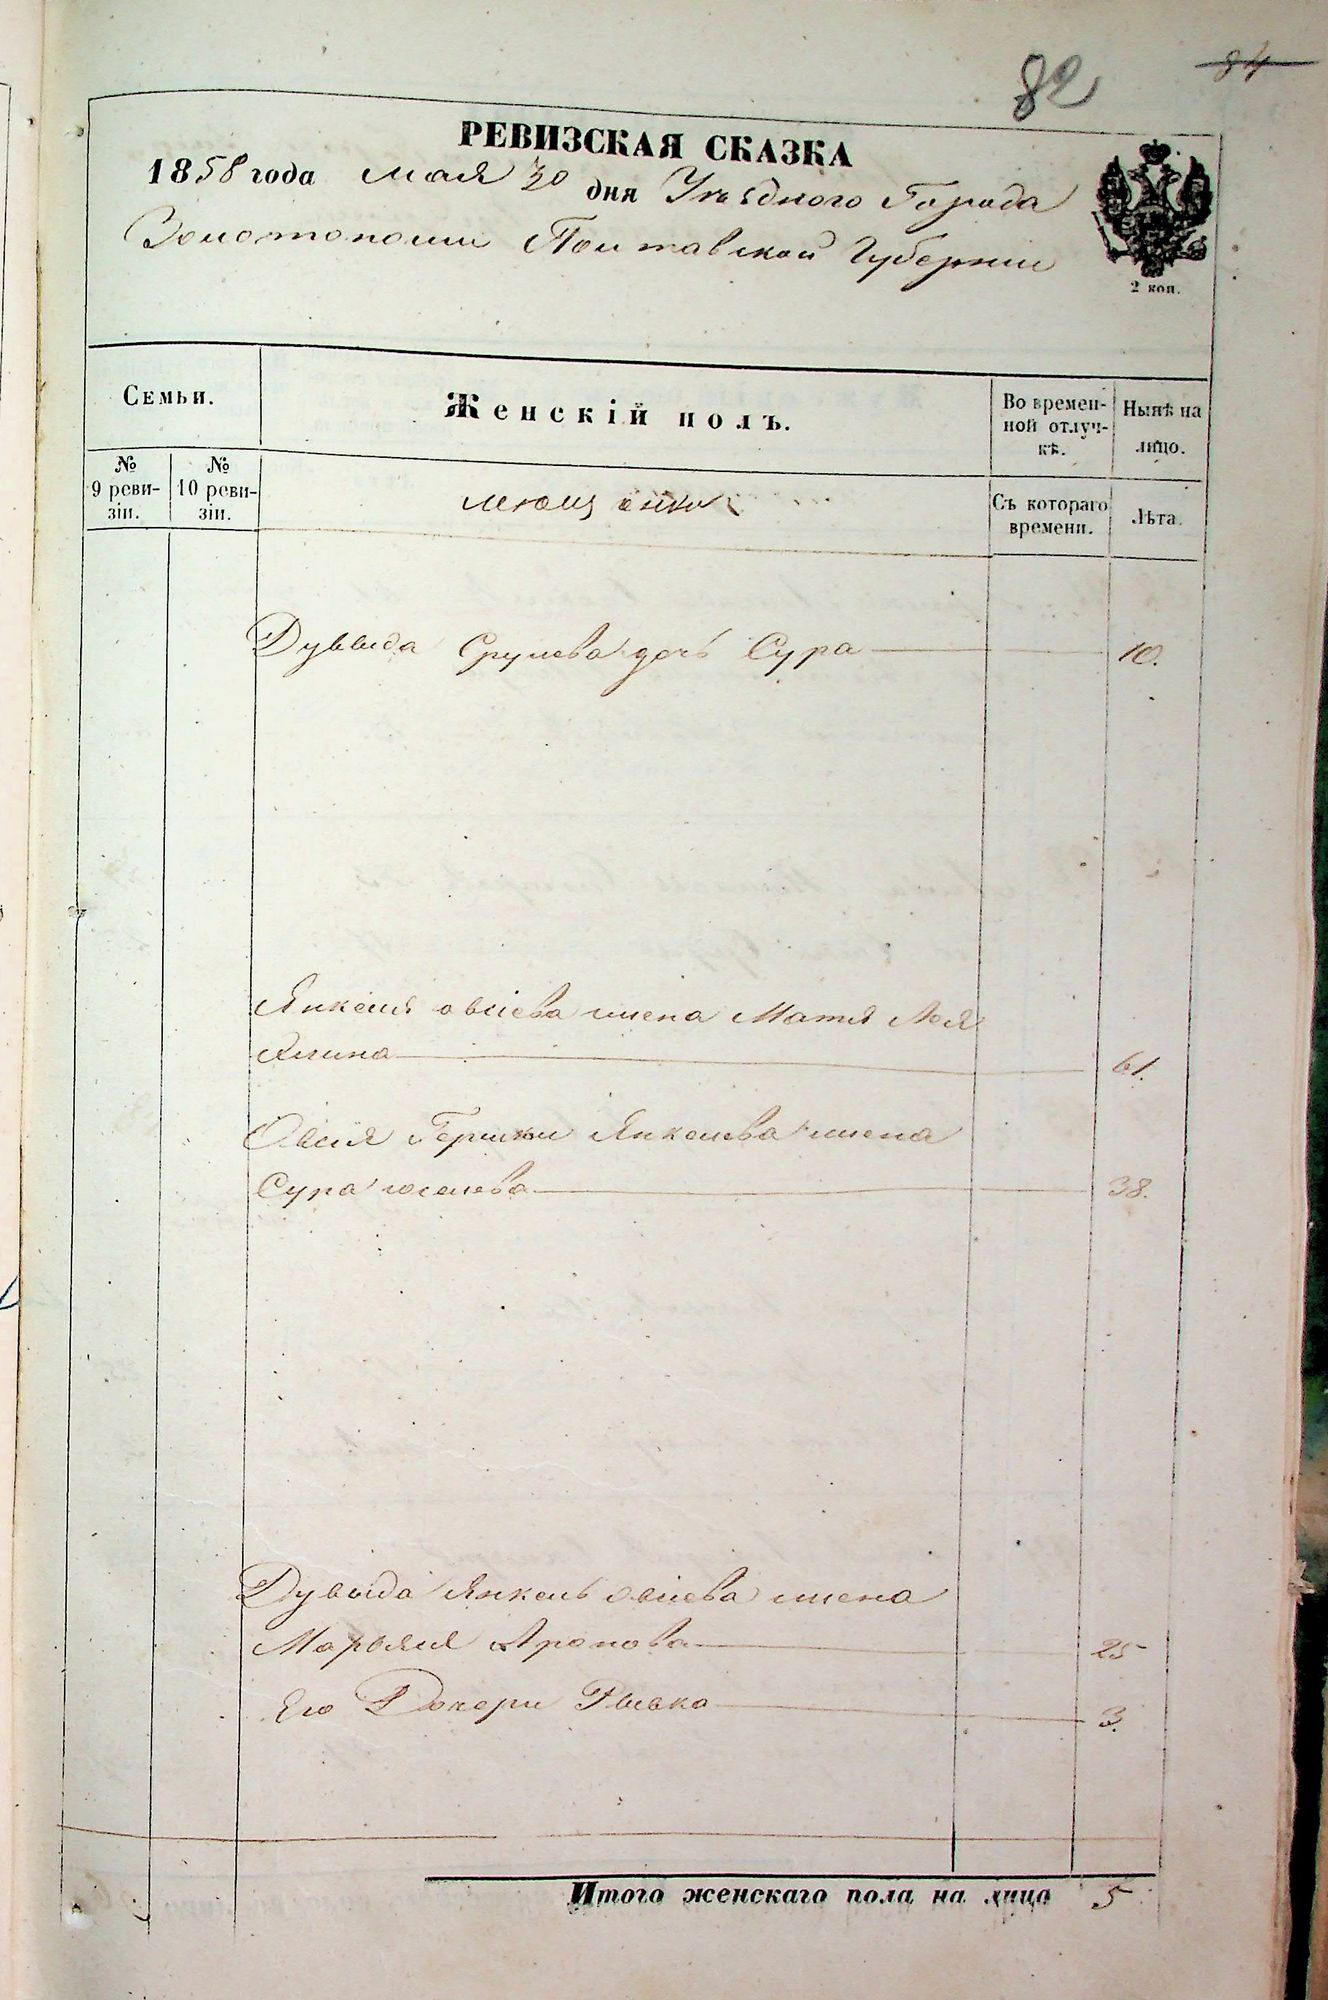 82 84
РЕВИЗСКАЯ СКАЗКА
1858 года мая 20 дня Уѣзднаго Города
Золотоноши Полтавской Губерніи
2 коп.
Семьи.
Женскій полъ.
Во времен-
ной отлуч-
кѣ.
Нынѣ на
лицо.
№
9 реви-
зіи.
№
10 реви-
зіи.
мющанки
Съ котораго
времени.
Лѣта.
Дувыда Срулева дочь Сура 10.
Янкеля Овсіева жена Матля Лея
61.
Овсія Гершки Янкелева жена
Сура Иоселева 38.
Дувыда Янкель Овсіева жена
Марьяся Аронова 25
Его Дочери Рывка 3.
Итого женскаго пола на лицо 5